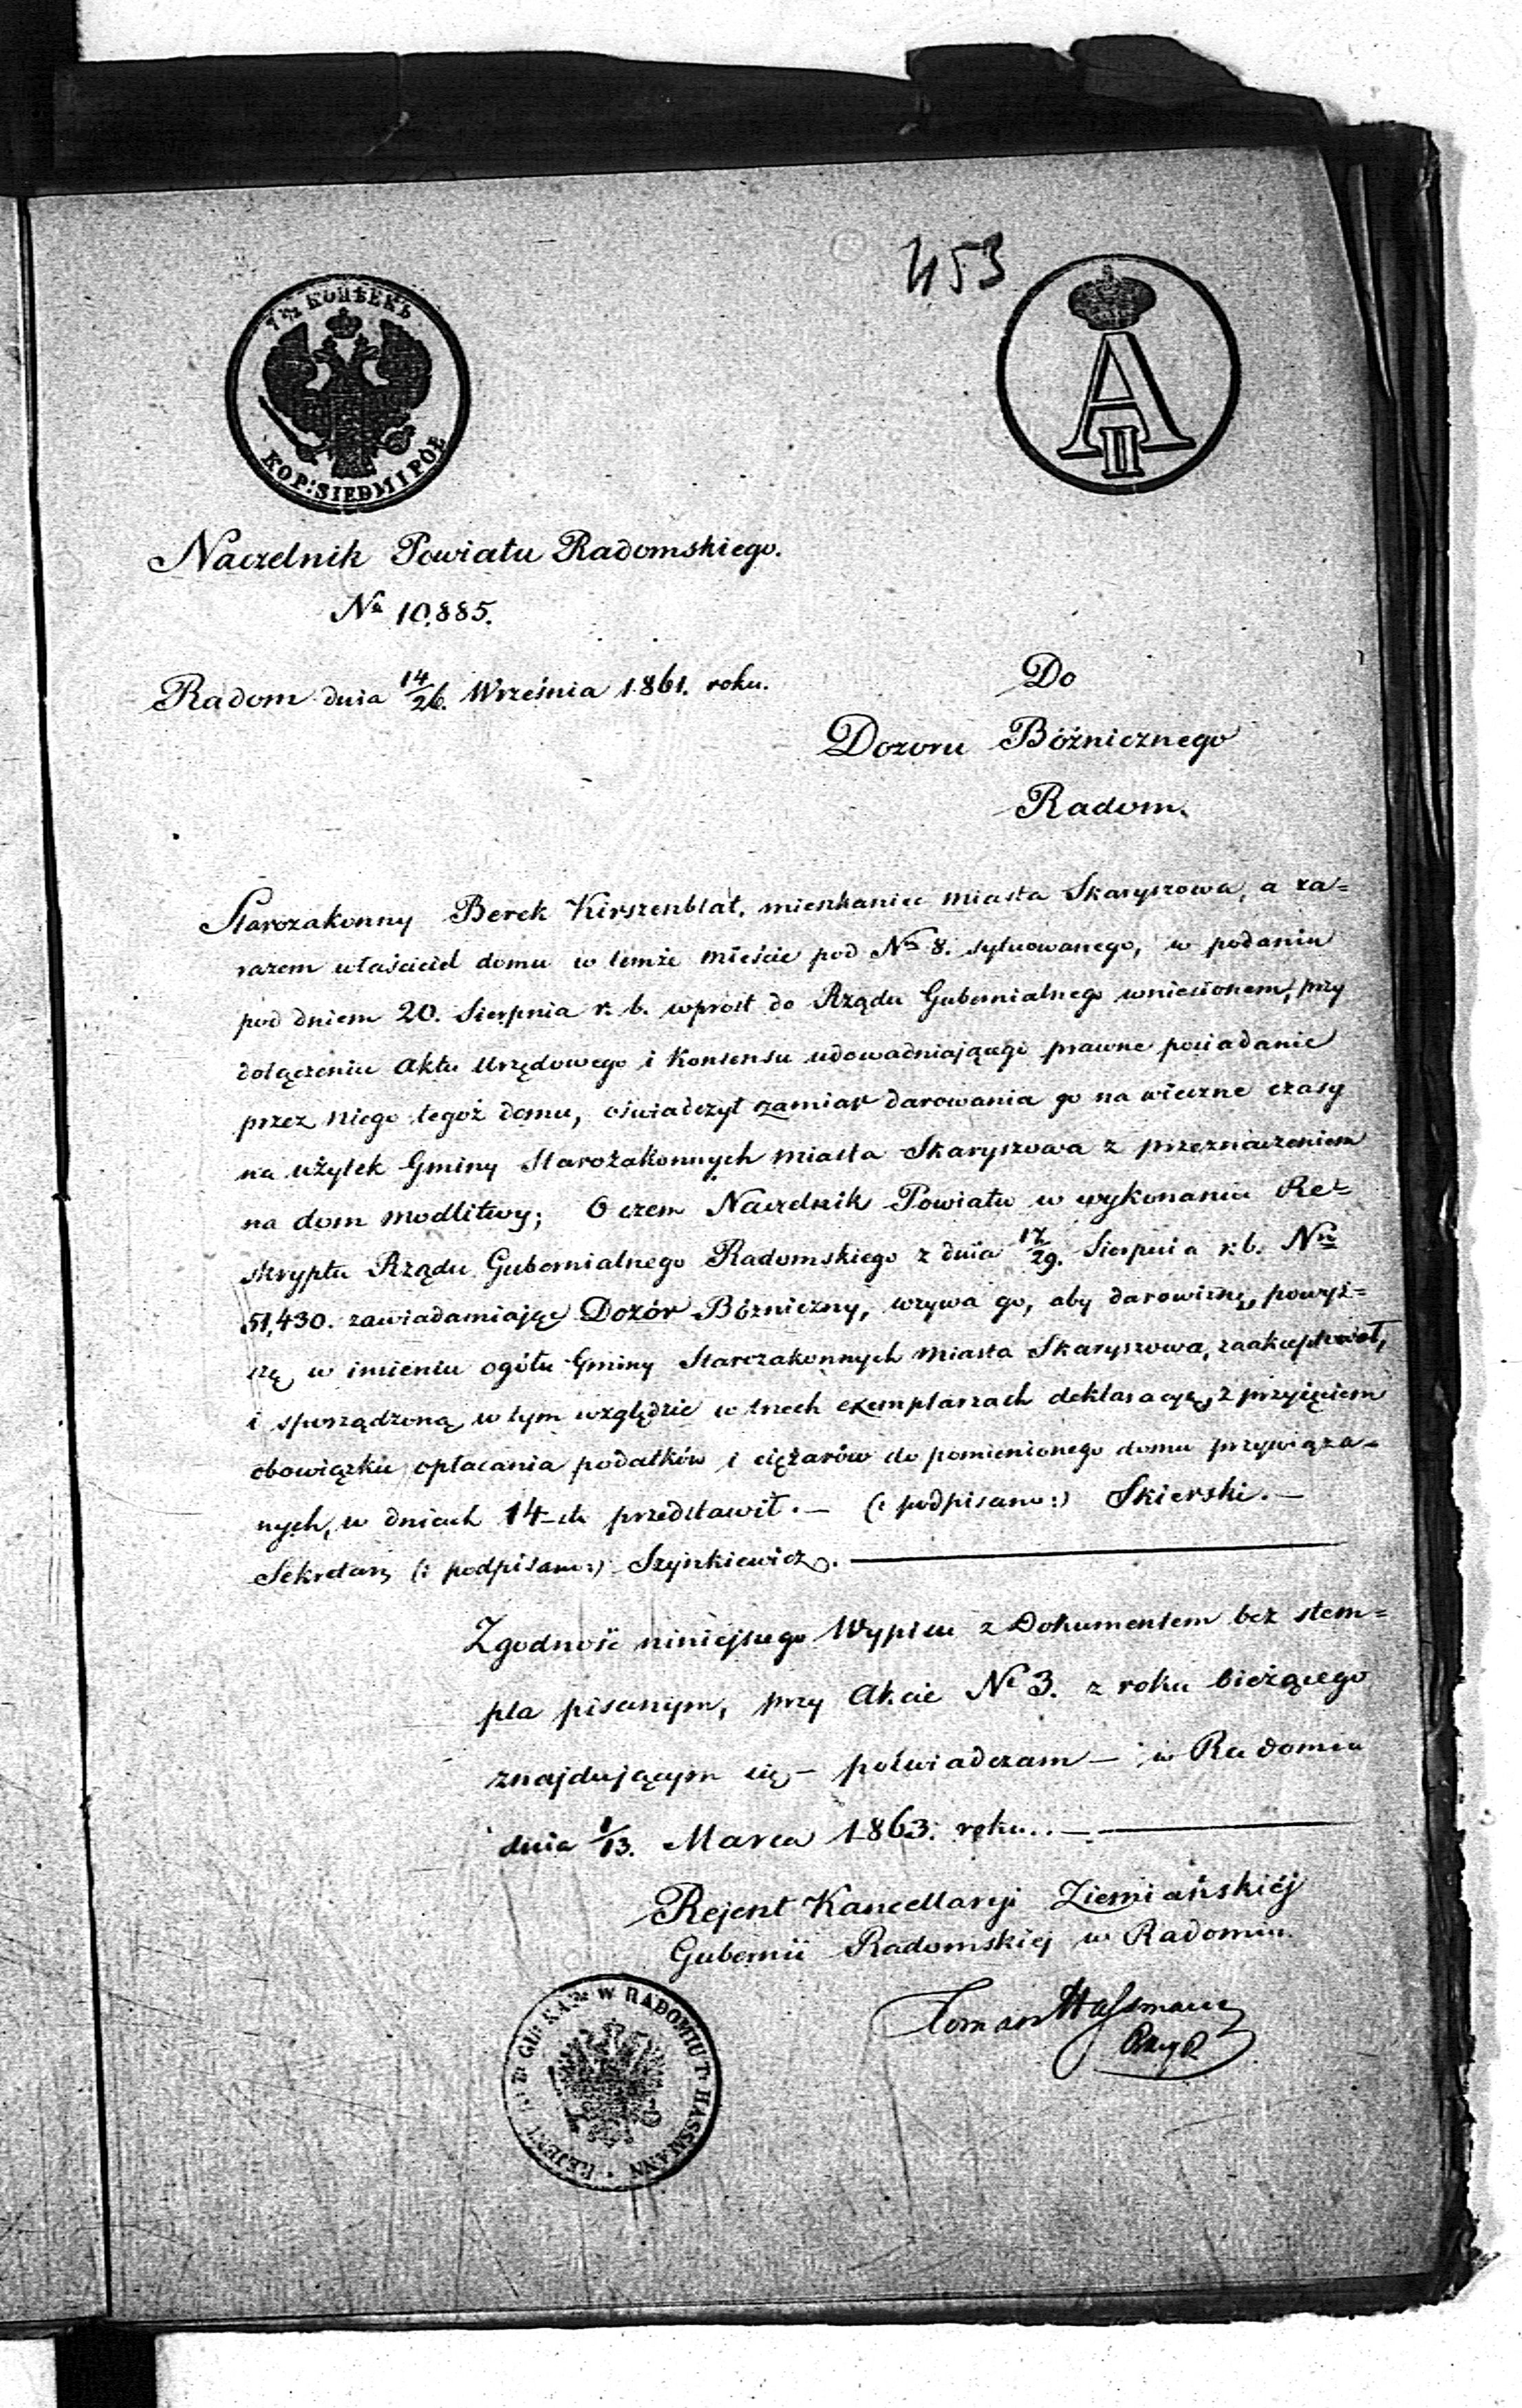 453
7 1/2 КОПѢЕКЪ
KOP: SIEDM I PÓŁ
A II
Naczelnik Powiatu Radomskiego.
No 10,885.
Radom dnia 14/26. Września 1861. roku.
Do
Dozoru Bóżnicznego
Radom.
Starozakonny Berek Kirszenblat, mieszkaniec miasta Skaryszowa, a za=
razem właściciel domu w temże mieście pod No 8. sytuowanego, w podaniu
pod dniem 20. Sierpnia r. b. wprost do Rządu Gubernialnego wniesionem, przy
dołączeniu Aktu Urzędowego i Konsensu udowadniającego prawne posiadanie
przez niego tegoż domu, oświadczył zamiar darowania go na wieczne czasy
na użytek Gminy Starozakonnych miasta Skaryszowa z przeznaczeniem
na dom modlitwy; O czem Naczelnik Powiatu w wykonaniu Re=
skryptu Rządu Gubernialnego Radomskiego z dnia 17/29. Sierpnia r. b. No
51,430. zawiadamiając Dozór Bóżniczny, wzywa go, aby darowiznę powyż=
szą w imieniu ogółu Gminy Starozakonnych miasta Skaryszowa, zaakceptował,
i sporządzoną w tym względzie w trzech exemplarzach deklaracyę, z przyjęciem
obowiązku opłacania podatków i ciężarów do pomienionego domu przywiąza=
nych, w dniach 14-tu przedstawił. — (: podpisano :) Skierski. —
Sekretarz (: podpisano :) Szynkiewicz. —
Zgodność niniejszego Wypisu z Dokumentem bez stem=
pla pisanym, przy Akcie No 3. z roku bieżącego
znajdującym się — poświadczam — w Radomiu
dnia 1/13. Marca 1863. roku. . —
Rejent Kancellaryi Ziemiańskiéj
Gubernii Radomskiej w Radomiu
Hassmann
REJENT GUB W RADOMIU T. HASSMANN